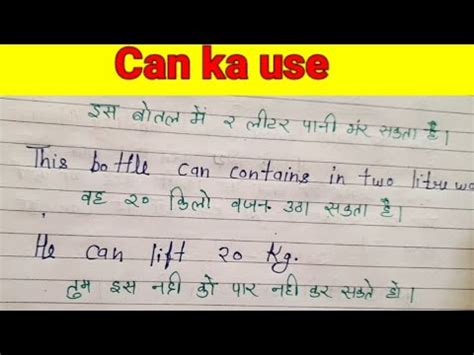 Can ka use
इस बोतल में २ लीटर पानी भर सकता है।
This bottle can contains in two litre wa
वह २० किलो वजन उठा सकता है।
He can lift २० Kg.
तुम इस नदी को पार नही कर सकते हो।